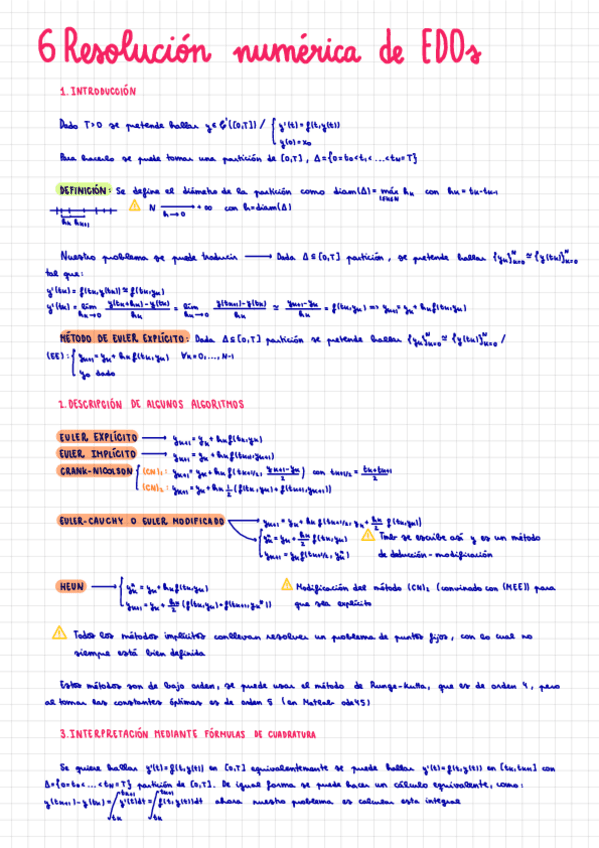 6 Resolución numérica de EDOs
1. INTRODUCCIÓN
Dado T>0 se pretende hallar y∈𝒞¹([0,T]) / { y'(t)=f(t,y(t))
y(0)=x₀
Para hacerlo se puede tomar una partición de [0,T], Δ={0=t₀<t₁<...<t_N=T}
DEFINICIÓN: Se define el diámetro de la partición como diam(Δ)= máx h_k con h_k=t_k-t_{k-1}
1≤k≤N
h_k h_{k+1} ⚠ N → +∞ con h=diam(Δ)
h→0
Nuestro problema se puede traducir → Dada Δ⊆[0,T] partición, se pretende hallar {y_k}ᴺ_{k=0} ≃ {y(t_k)}ᴺ_{k=0}
tal que:
y'(t_k)=f(t_k,y(t_k)) ≃ f(t_k,y_k)
y'(t_k)= lím_{h_k→0} (y(t_k+h_k)-y(t_k))/h_k = lím_{h_k→0} (y(t_{k+1})-y(t_k))/h_k ≃ (y_{k+1}-y_k)/h_k = f(t_k,y_k) ⇒ y_{k+1}=y_k+h_k f(t_k,y_k)
MÉTODO DE EULER EXPLÍCITO: Dada Δ⊆[0,T] partición se pretende hallar {y_k}ᴺ_{k=0} ≃ {y(t_k)}ᴺ_{k=0} /
(EE): { y_{k+1}=y_k+h_k f(t_k,y_k) ∀k=0,...,N-1
y₀ dado
2. DESCRIPCIÓN DE ALGUNOS ALGORITMOS
EULER EXPLÍCITO → y_{k+1}=y_k+h_k f(t_k,y_k)
EULER IMPLÍCITO → y_{k+1}=y_k+h_k f(t_{k+1},y_{k+1})
CRANK-NICOLSON { (CN)₁: y_{k+1}=y_k+h_k f(t_{k+1/2}, (y_{k+1}-y_k)/2) con t_{k+1/2}=(t_k+t_{k+1})/2
(CN)₂: y_{k+1}=y_k+h_k 1/2 (f(t_k,y_k)+f(t_{k+1},y_{k+1}))
EULER-CAUCHY O EULER MODIFICADO → y_{k+1}=y_k+h_k f(t_{k+1/2}, y_k+h_k/2 f(t_k,y_k))
{ y*_k=y_k+h_k/2 f(t_k,y_k) ⚠ Tmb se escribe así y es un método
y_{k+1}=y_k f(t_{k+1/2}, y*_k) de deducción-modificación
HEUN → { y*_k=y_k+h_k f(t_k,y_k) ⚠ Modificación del método (CN)₂ (convinado con (MEE)) para
y_{k+1}=y_k+h_k/2 (f(t_k,y_k)+f(t_{k+1},y*_k)) que sea explícito
⚠ Todos los métodos implícitos conllevan resolver un problema de puntos fijos, con lo cual no
siempre está bien definida
Estos métodos son de bajo orden, se puede usar el método de Runge-Kutta, que es de orden 4, pero
al tomar las constantes óptimas es de orden 5 (en Matlab ode45)
3. INTERPRETACIÓN MEDIANTE FÓRMULAS DE CUADRATURA
Se quiere hallar y'(t)=f(t,y(t)) en [0,T] equivalentemente se puede hallar y'(t)=f(t,y(t)) en [t_k,t_{k+1}] con
Δ={0=t₀<...<t_N=T} partición de [0,T]. De igual forma se puede hacer un cálculo equivalente, como:
y(t_{k+1})-y(t_k)=∫_{t_k}^{t_{k+1}} y'(t)dt=∫_{t_k}^{t_{k+1}} f(t,y(t))dt ahora nuestro problema es calcular esta integral